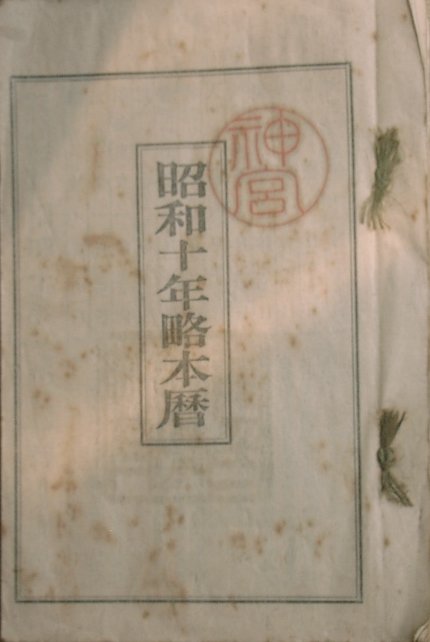 神宮
昭和十年略本暦